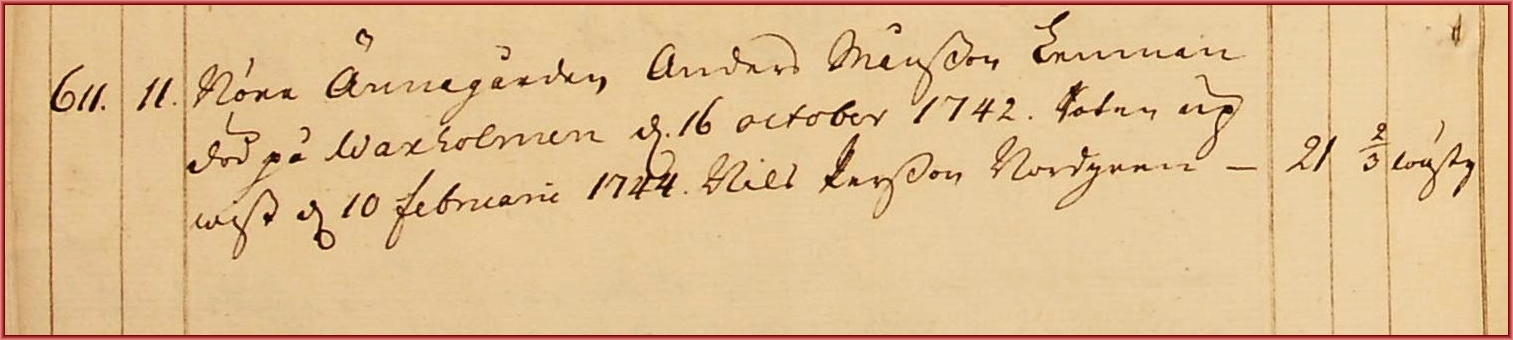 611. 11. Norra Ånnagården Anders Månßon Lenman
död på Waxholmen d. 16 october 1742. Roten up
wist d 10 februarii 1744. Nils Perßon Nordgren — 21 2/3